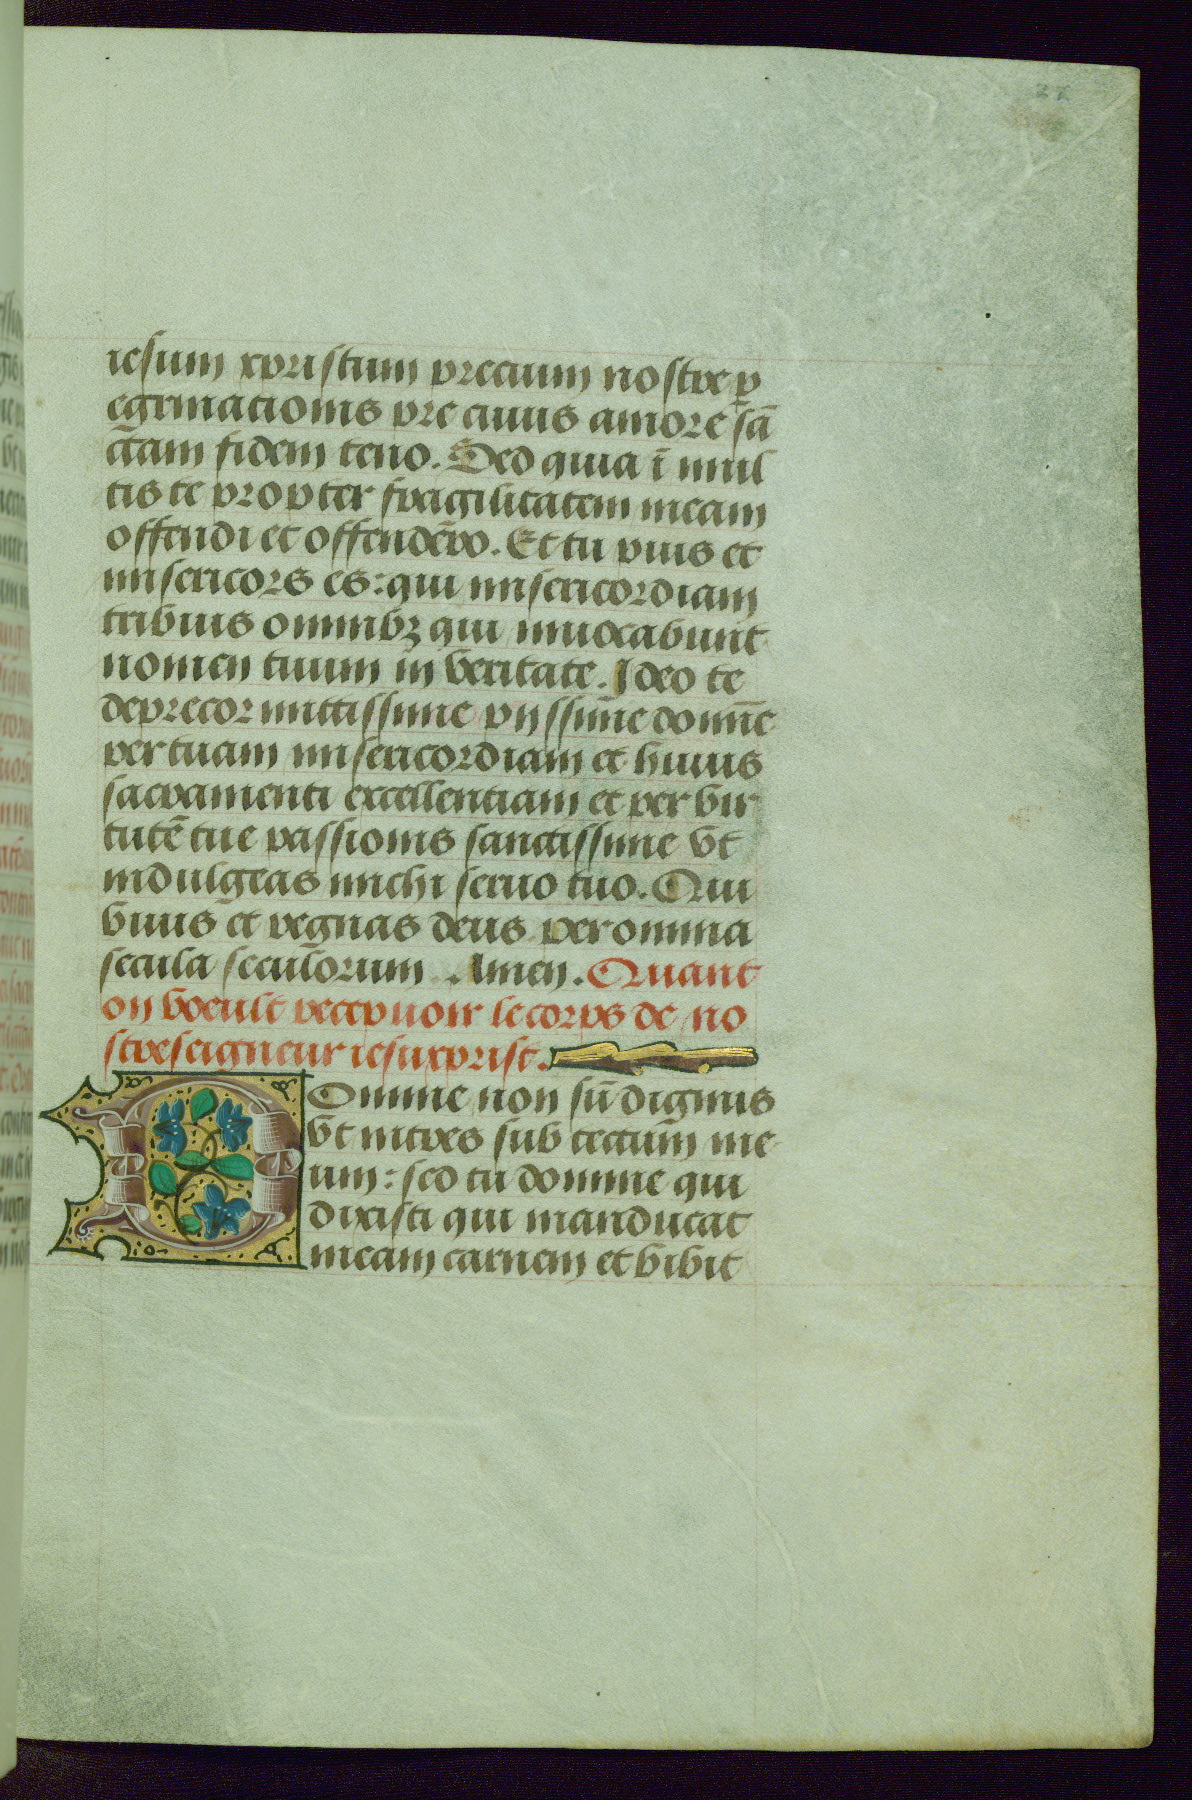 iesum xpristum precium nostre p̱
egrinacionis pre cuius amore sā
ctam fidem teno. Sed quia ī mul
tis te propter fragilitatem meam
offendi et offendēro. Et tu pius et
misericors es: qui misericordiam
tribuis omnibꝫ qui inuocabunt
nomen tuum in veritate. Ideo te
deprecor mittissime pijssime domīe
per tuam misericordiam et huius
sacramenti excellentiam et per vir
tutē tue passionis sanctissime vt
indulgeas michi seruo tuo. Qui
viuis et regnas deus per omnia
secula seculorum. Amen. Quant
on voeult recepuoir le corps de no
stre seigneur iesuxprist.
Domine non sū dignus
vt intres sub tectum me
um: sed tu domine qui
dixisti qui manducat
meam carnem et bibit